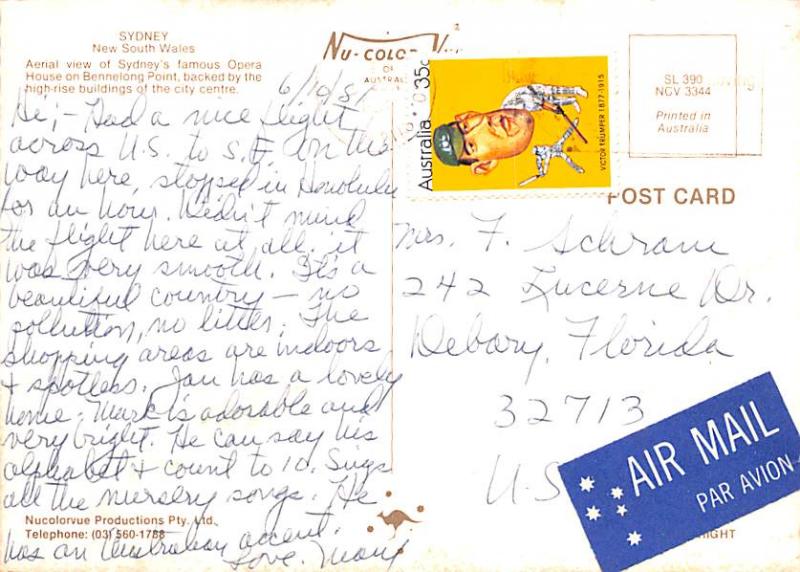 SYDNEY
New South Wales
Aerial view of Sydney's famous Opera
House on Bennelong Point, backed by the
high-rise buildings of the city centre.
6/10/81
Hi;- Had a nice flight
across U.S. to S.F. On the
way here, stopped in Honolulu
for an hour. Didn't mind
the flight here at all. it
was very smooth. It's a
beautiful country - no
pollution, no litter. The
shopping areas are indoors
+ spotless. Jan has a lovely
home. Mark is adorable and
very bright. He can say his
alphabet + count to 10. Sings
all the nursery songs. He
has an Australian accent.
Love. Mary
Nucolorvue Productions Pty. Ltd.
Telephone: (03) 560-1788
NU-COLO
OF
AUSTRAL
Australia 35c
VICTOR TRUMPER 1877-1915
SL 390
NCV 3344
Printed in
Australia
POST CARD
Mrs. F. Schram
242 Lucerne Dr.
Debary, Florida
32713
U.S
AIR MAIL
PAR AVION